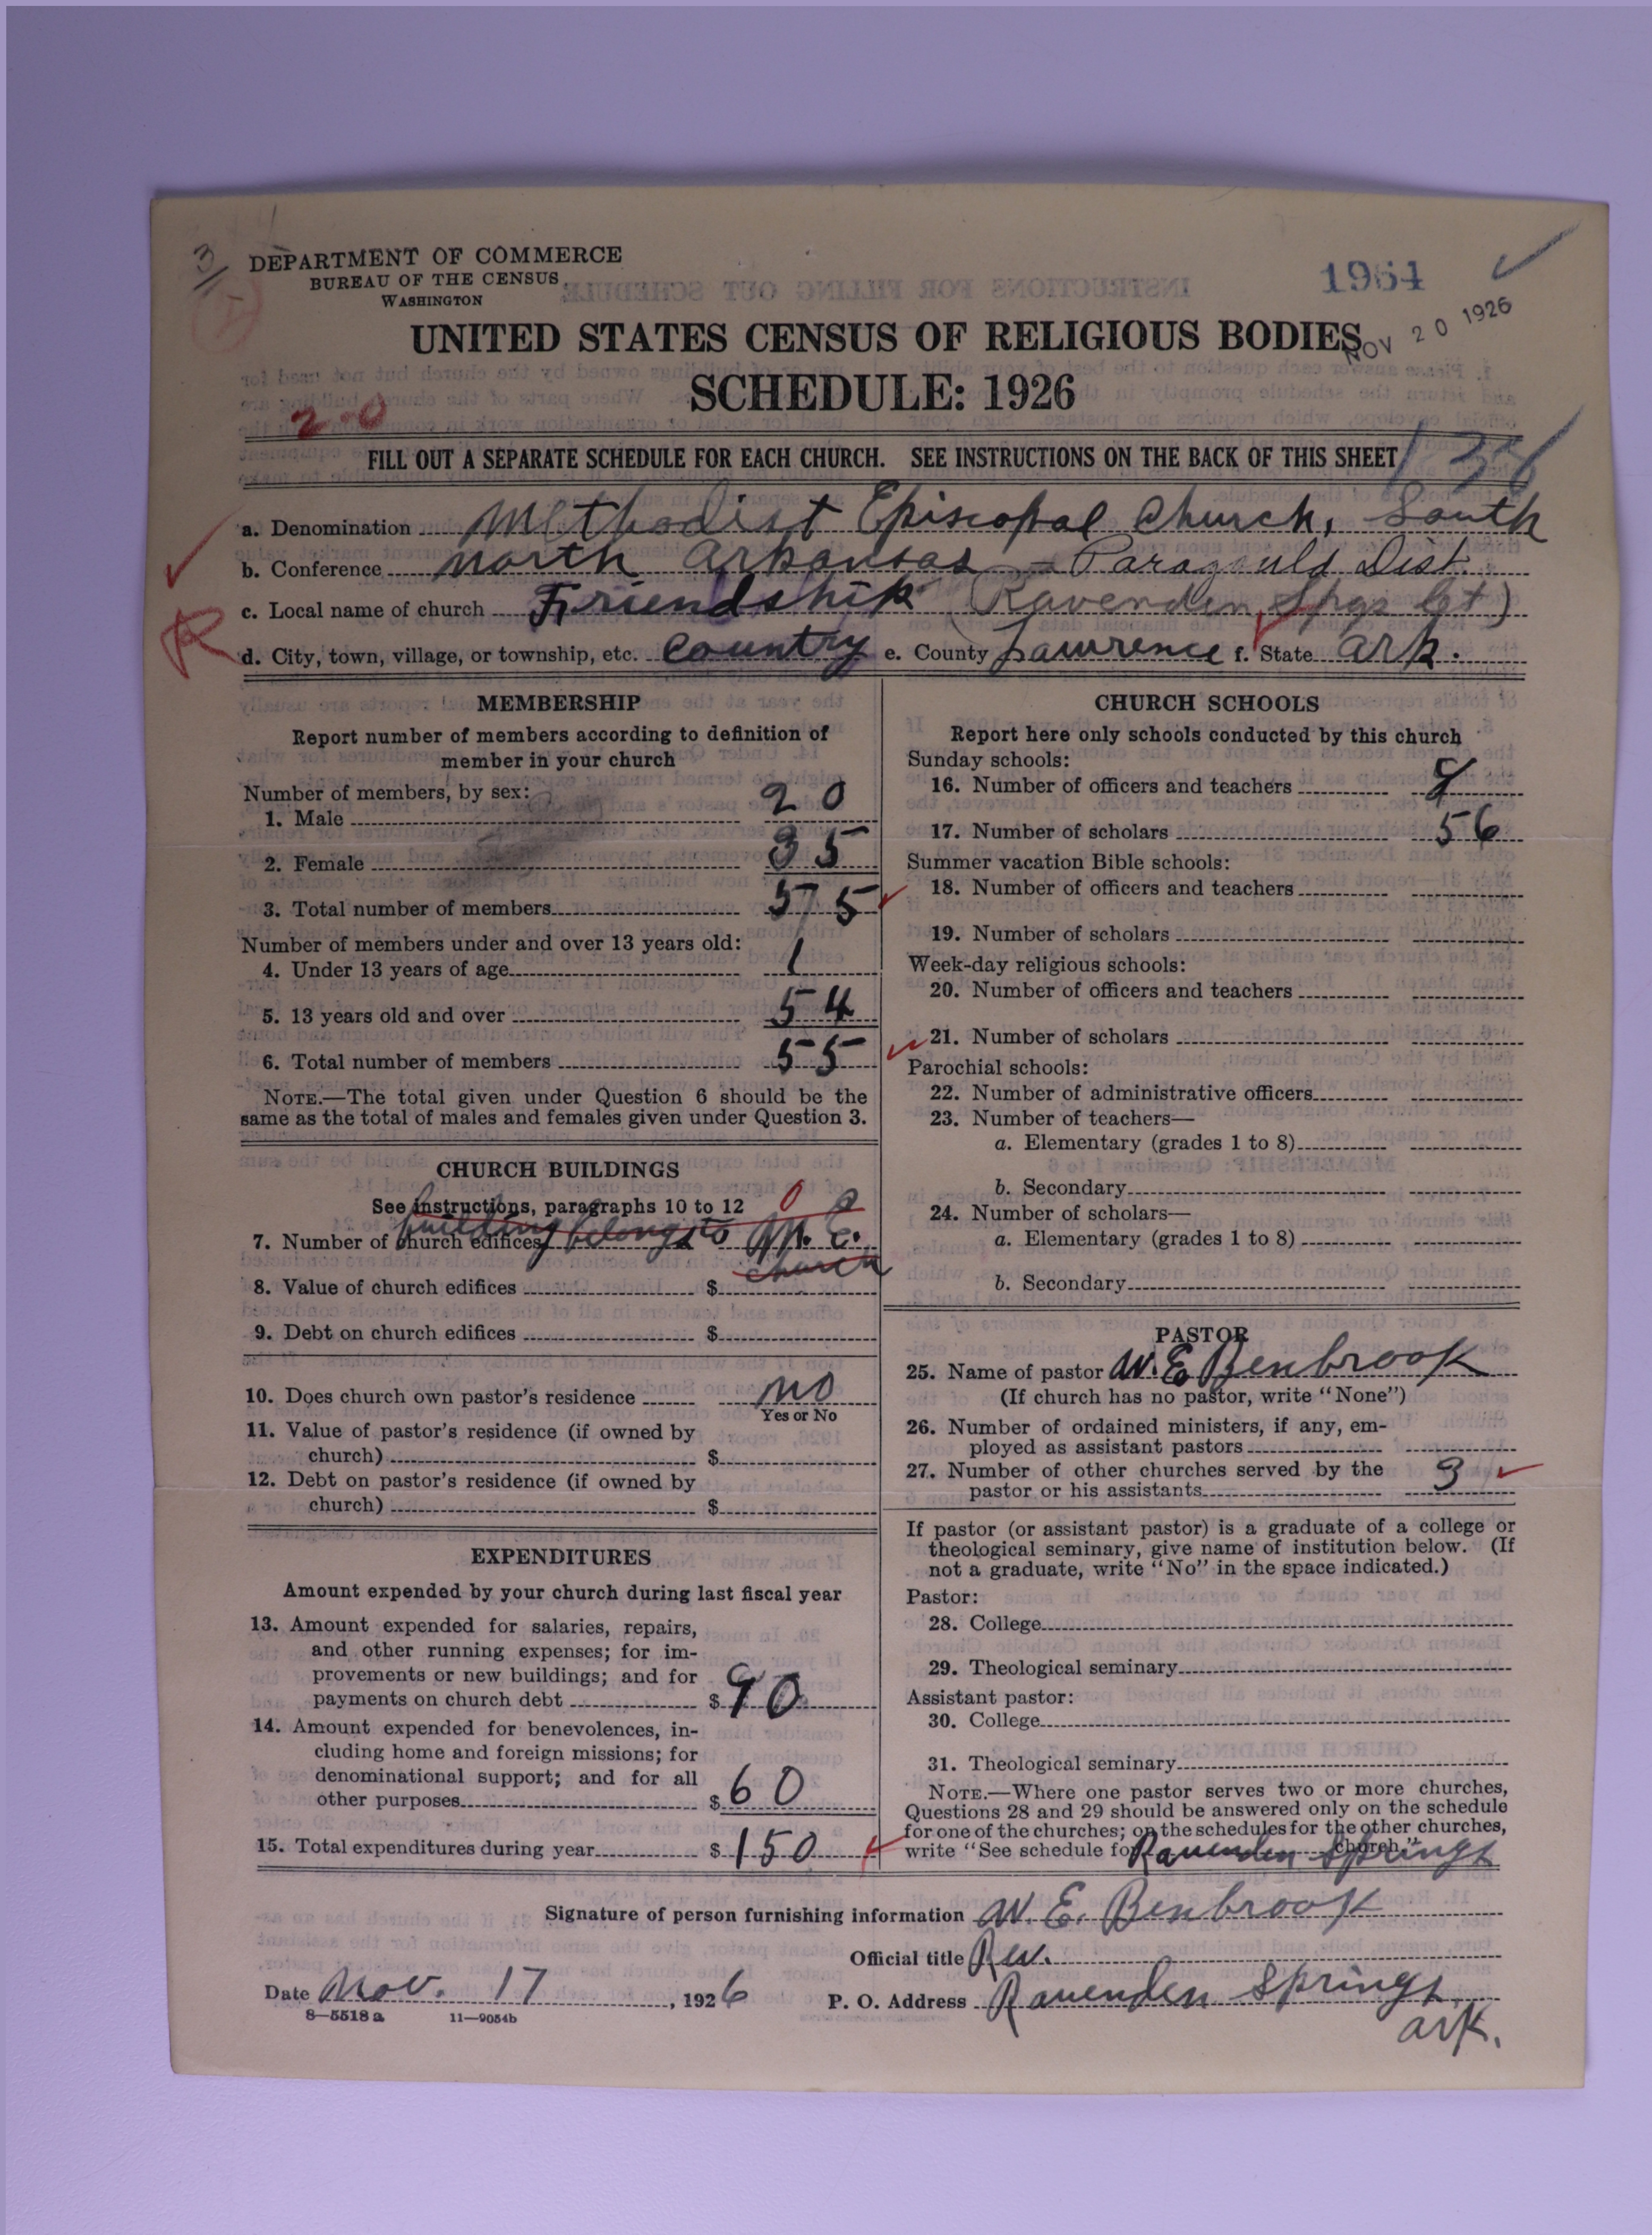 3/
DEPARTMENT OF COMMERCE
BUREAU OF THE CENSUS
WASHINGTON
1964
NOV 20 1926
UNITED STATES CENSUS OF RELIGIOUS BODIES
SCHEDULE: 1926
2-0
FILL OUT A SEPARATE SCHEDULE FOR EACH CHURCH. SEE INSTRUCTIONS ON THE BACK OF THIS SHEET
a. Denomination Methodist Episcopal Church, South
b. Conference North Arkansas - Paragould Dist.
c. Local name of church Friendship (Ravenden Spgs Ct)
d. City, town, village, or township, etc. Country e. County Lawrence f. State Ark.
MEMBERSHIP
Report number of members according to definition of
member in your church
Number of members, by sex:
1. Male 20
2. Female 35
3. Total number of members 55
Number of members under and over 13 years old:
4. Under 13 years of age 1
5. 13 years old and over 54
6. Total number of members 55
NOTE.—The total given under Question 6 should be the
same as the total of males and females given under Question 3.
CHURCH BUILDINGS
See instructions, paragraphs 10 to 12 0 0
7. Number of church edifices building belongs to M. E.
church
8. Value of church edifices $
9. Debt on church edifices $
10. Does church own pastor's residence no
Yes or No
11. Value of pastor's residence (if owned by
church) $
12. Debt on pastor's residence (if owned by
church) $
EXPENDITURES
Amount expended by your church during last fiscal year
13. Amount expended for salaries, repairs,
and other running expenses; for im-
provements or new buildings; and for
payments on church debt $ 90
14. Amount expended for benevolences, in-
cluding home and foreign missions; for
denominational support; and for all
other purposes $ 60
15. Total expenditures during year $ 150
CHURCH SCHOOLS
Report here only schools conducted by this church
Sunday schools:
16. Number of officers and teachers
17. Number of scholars 56
Summer vacation Bible schools:
18. Number of officers and teachers
19. Number of scholars
Week-day religious schools:
20. Number of officers and teachers
21. Number of scholars
Parochial schools:
22. Number of administrative officers
23. Number of teachers—
a. Elementary (grades 1 to 8)
b. Secondary
24. Number of scholars—
a. Elementary (grades 1 to 8)
b. Secondary
PASTOR
25. Name of pastor W. E. Benbrook
(If church has no pastor, write "None")
26. Number of ordained ministers, if any, em-
ployed as assistant pastors
27. Number of other churches served by the
pastor or his assistants 3
If pastor (or assistant pastor) is a graduate of a college or
theological seminary, give name of institution below. (If
not a graduate, write "No" in the space indicated.)
Pastor:
28. College
29. Theological seminary
Assistant pastor:
30. College
31. Theological seminary
NOTE.—Where one pastor serves two or more churches,
Questions 28 and 29 should be answered only on the schedule
for one of the churches; on the schedules for the other churches,
write "See schedule for Ravenden Springs church."
Signature of person furnishing information W. E. Benbrook
Official title Rev.
Date Nov. 17, 1926 P. O. Address Ravenden Springs
Ark.
8—5518 a 11—9054b